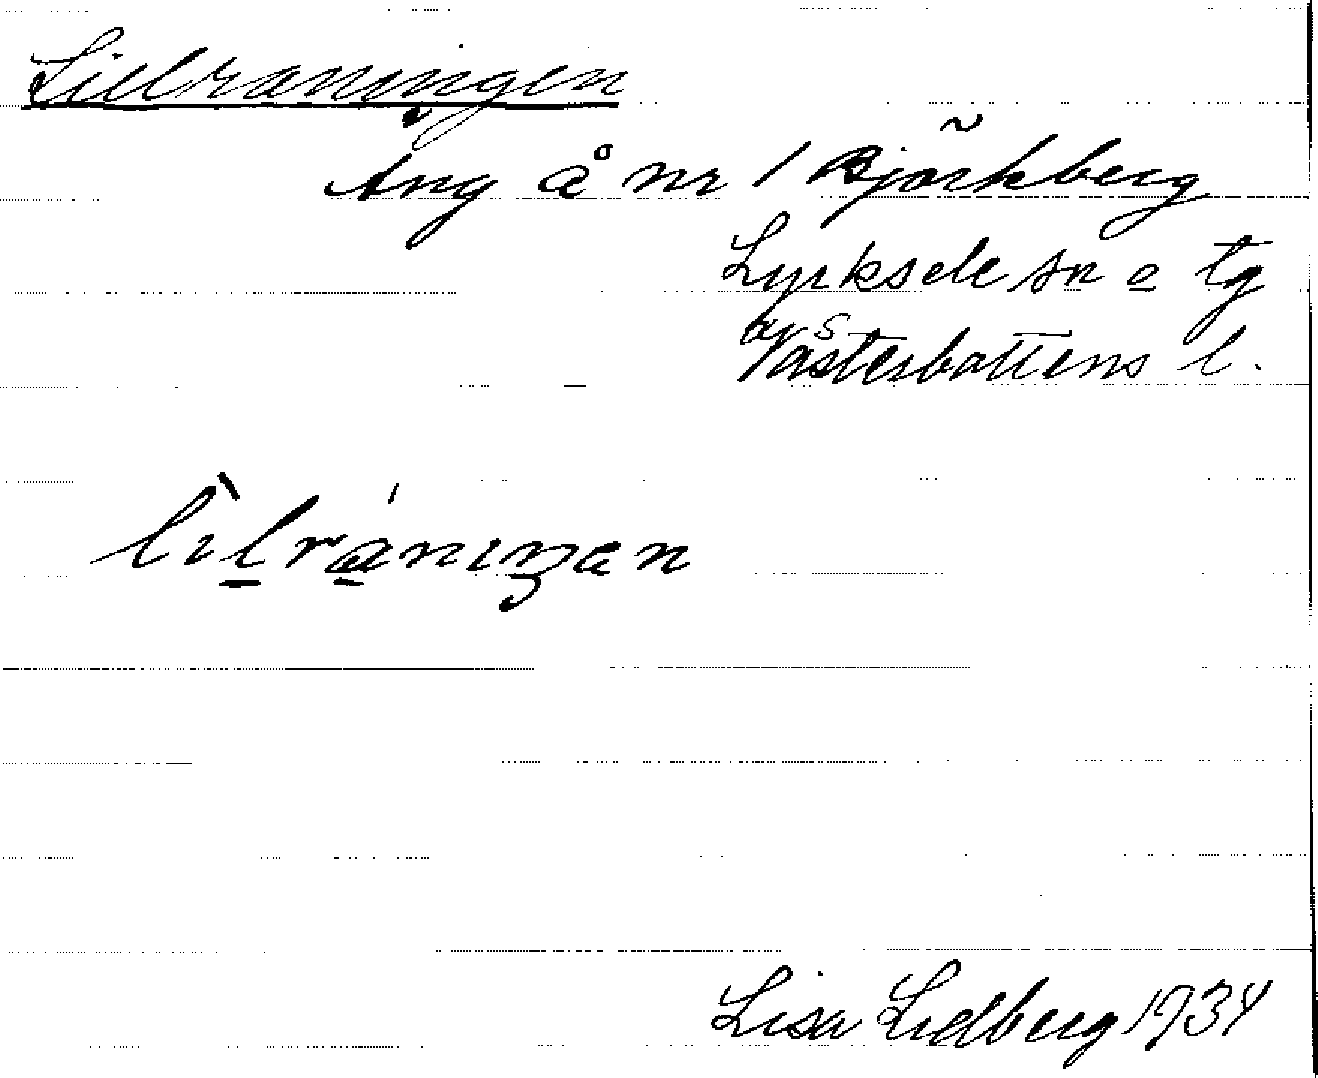 Lillraningen
Äng å nr 1 Björkberg
Lycksele sn o tg
Västerbottens l.
lìlrániŋan
Lisa Lidberg 1934